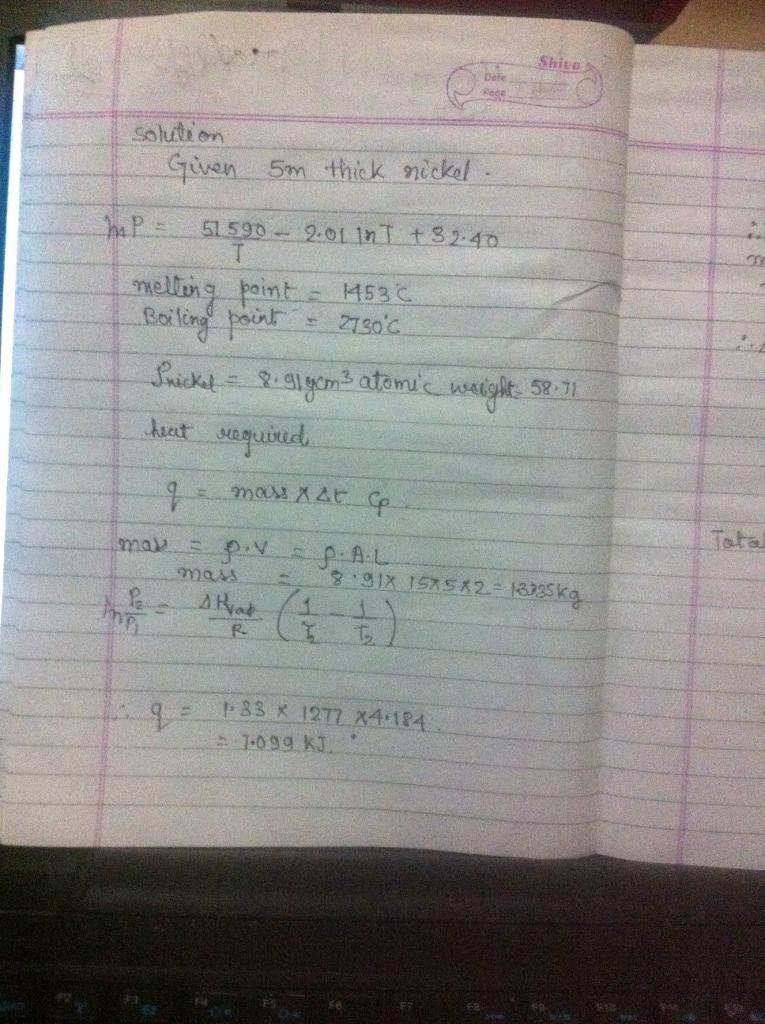 Shiva
Date
Page
solution
Given 5m thick nickel.
ln P = 51590/T - 2.01 lnT + 32.40
melting point = 1453°C
Boiling point = 2730°C
ρnickel = 8.91 gcm3 atomic weight = 58.71
heat required
q = mass x Δt Cp.
mass = ρ.V = ρ.A.L
mass = 8.91x 15x5x2 = 13335kg
ln P2/P1 = ΔHvap/R (1/T2 - 1/T2)
∴ q = 1.33 x 1277 x4.184.
= 7.099 KJ.
∴
∴
Total
F2
F3
F4
F5
F6
F7
F8
F9
F10